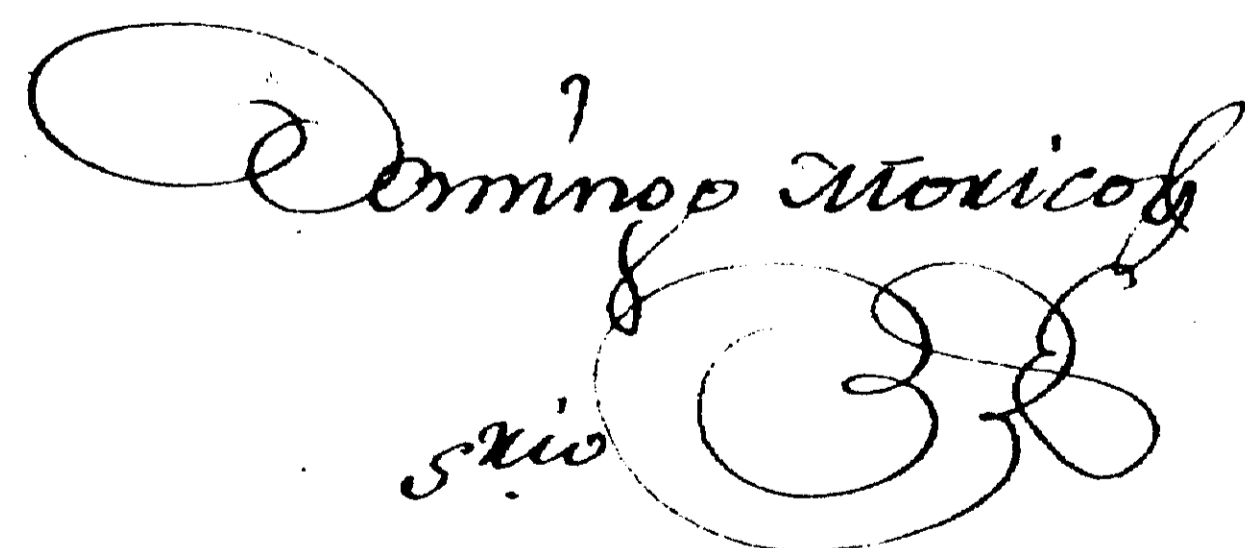 Domingo Moxico
srio